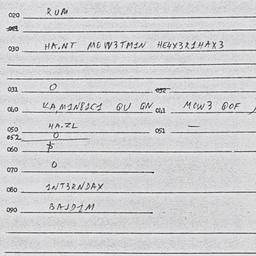 020 RUM
030 HA.NT MEW3TM1N HE4X3R1HAX3
031 0 032
040 KAM1N81C1 QU GN 041 MEW3 QOF
050 HA.ZL 051 —
052 0
060 $
070 0
080 1NT3RNDAX
090 BA1D1M